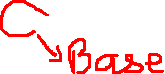 C
Base